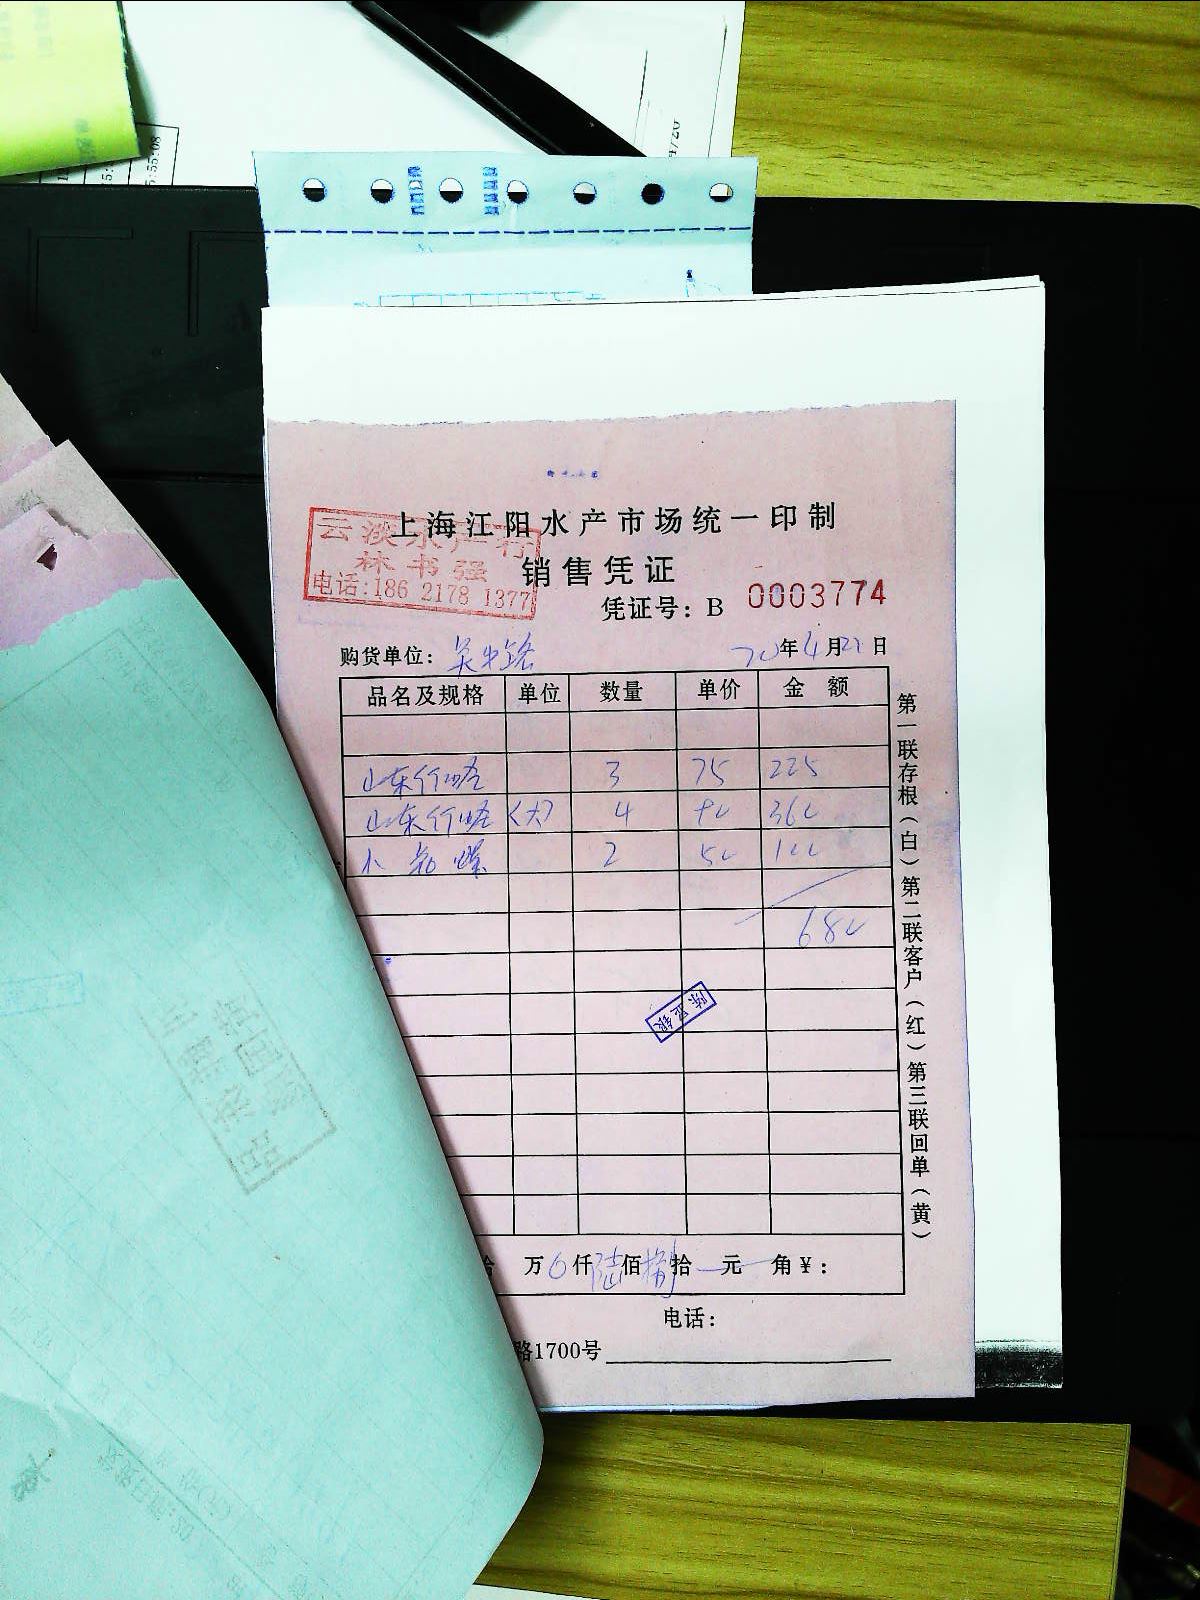 上海江阳水产市场统一印制
云淡水产行
林书强
电话:186 2178 1377
销售凭证
凭证号: B 0003774
购货单位:
20年4月21日
品名及规格 单位 数量 单价 金 额
山东 3 75 225
山东 (大) 4 90 360
小 2 50 100
680
陈亚银
万 仟陆佰捌拾 元 角¥:
电话:
路1700号
第一联存根(白)第二联客户(红)第三联回单(黄)